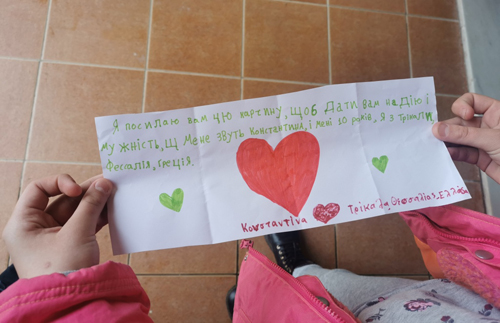 Я посилаю вам цю картину, щоб Дати вам надію і
мужність, Щ Мене звуть Константина, і мені 10 років, Я з Трікали,
Фесалія, Греція.
Κωνσταντίνα Τρίκαλα, Θεσσαλίας, Ελλάδα